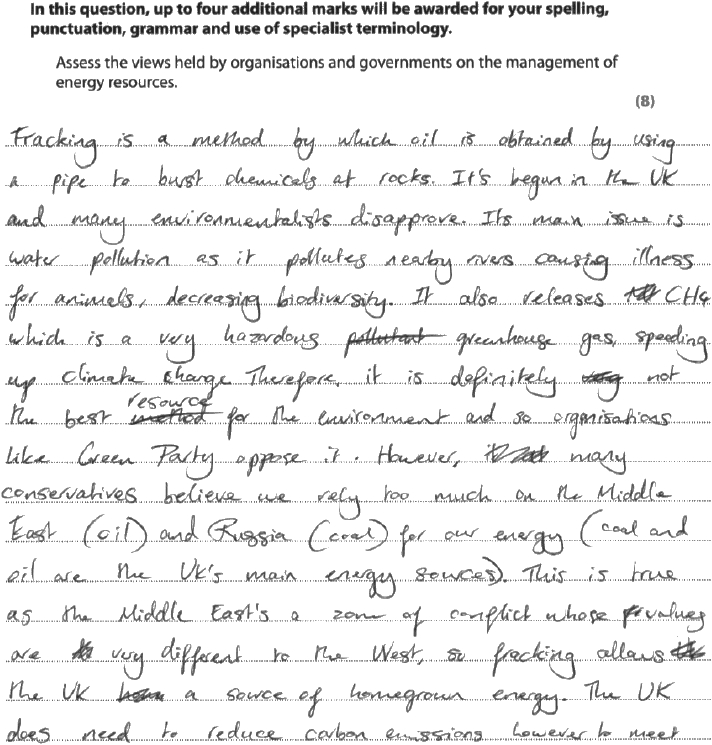 In this question, up to four additional marks will be awarded for your spelling,
punctuation, grammar and use of specialist terminology.
Assess the views held by organisations and governments on the management of
energy resources.
(8)
Fracking is a method by which oil is obtained by using
a pipe to burst chemicals at rocks. It's begun in the UK
and many environmentalists disapprove. Its main issue is
water pollution as it pollutes nearby rivers causing illness
for animals, decreasing biodiversity. It also releases CH4
which is a very hazardous pollutant greenhouse gas, speeding
up climate change Therefore, it is definitely not
resource
the best method for the environment and so organisations
like Green Party oppose it. However, many
conservatives believe we rely too much on the Middle
East (oil) and Russia (coal) for our energy (coal and
oil are the UK's main energy sources). This is true
as the Middle East's a zone of conflict whose values
are very different to the West, so fracking allows
the UK a source of homegrown energy. The UK
does need to reduce carbon emissions however to meet